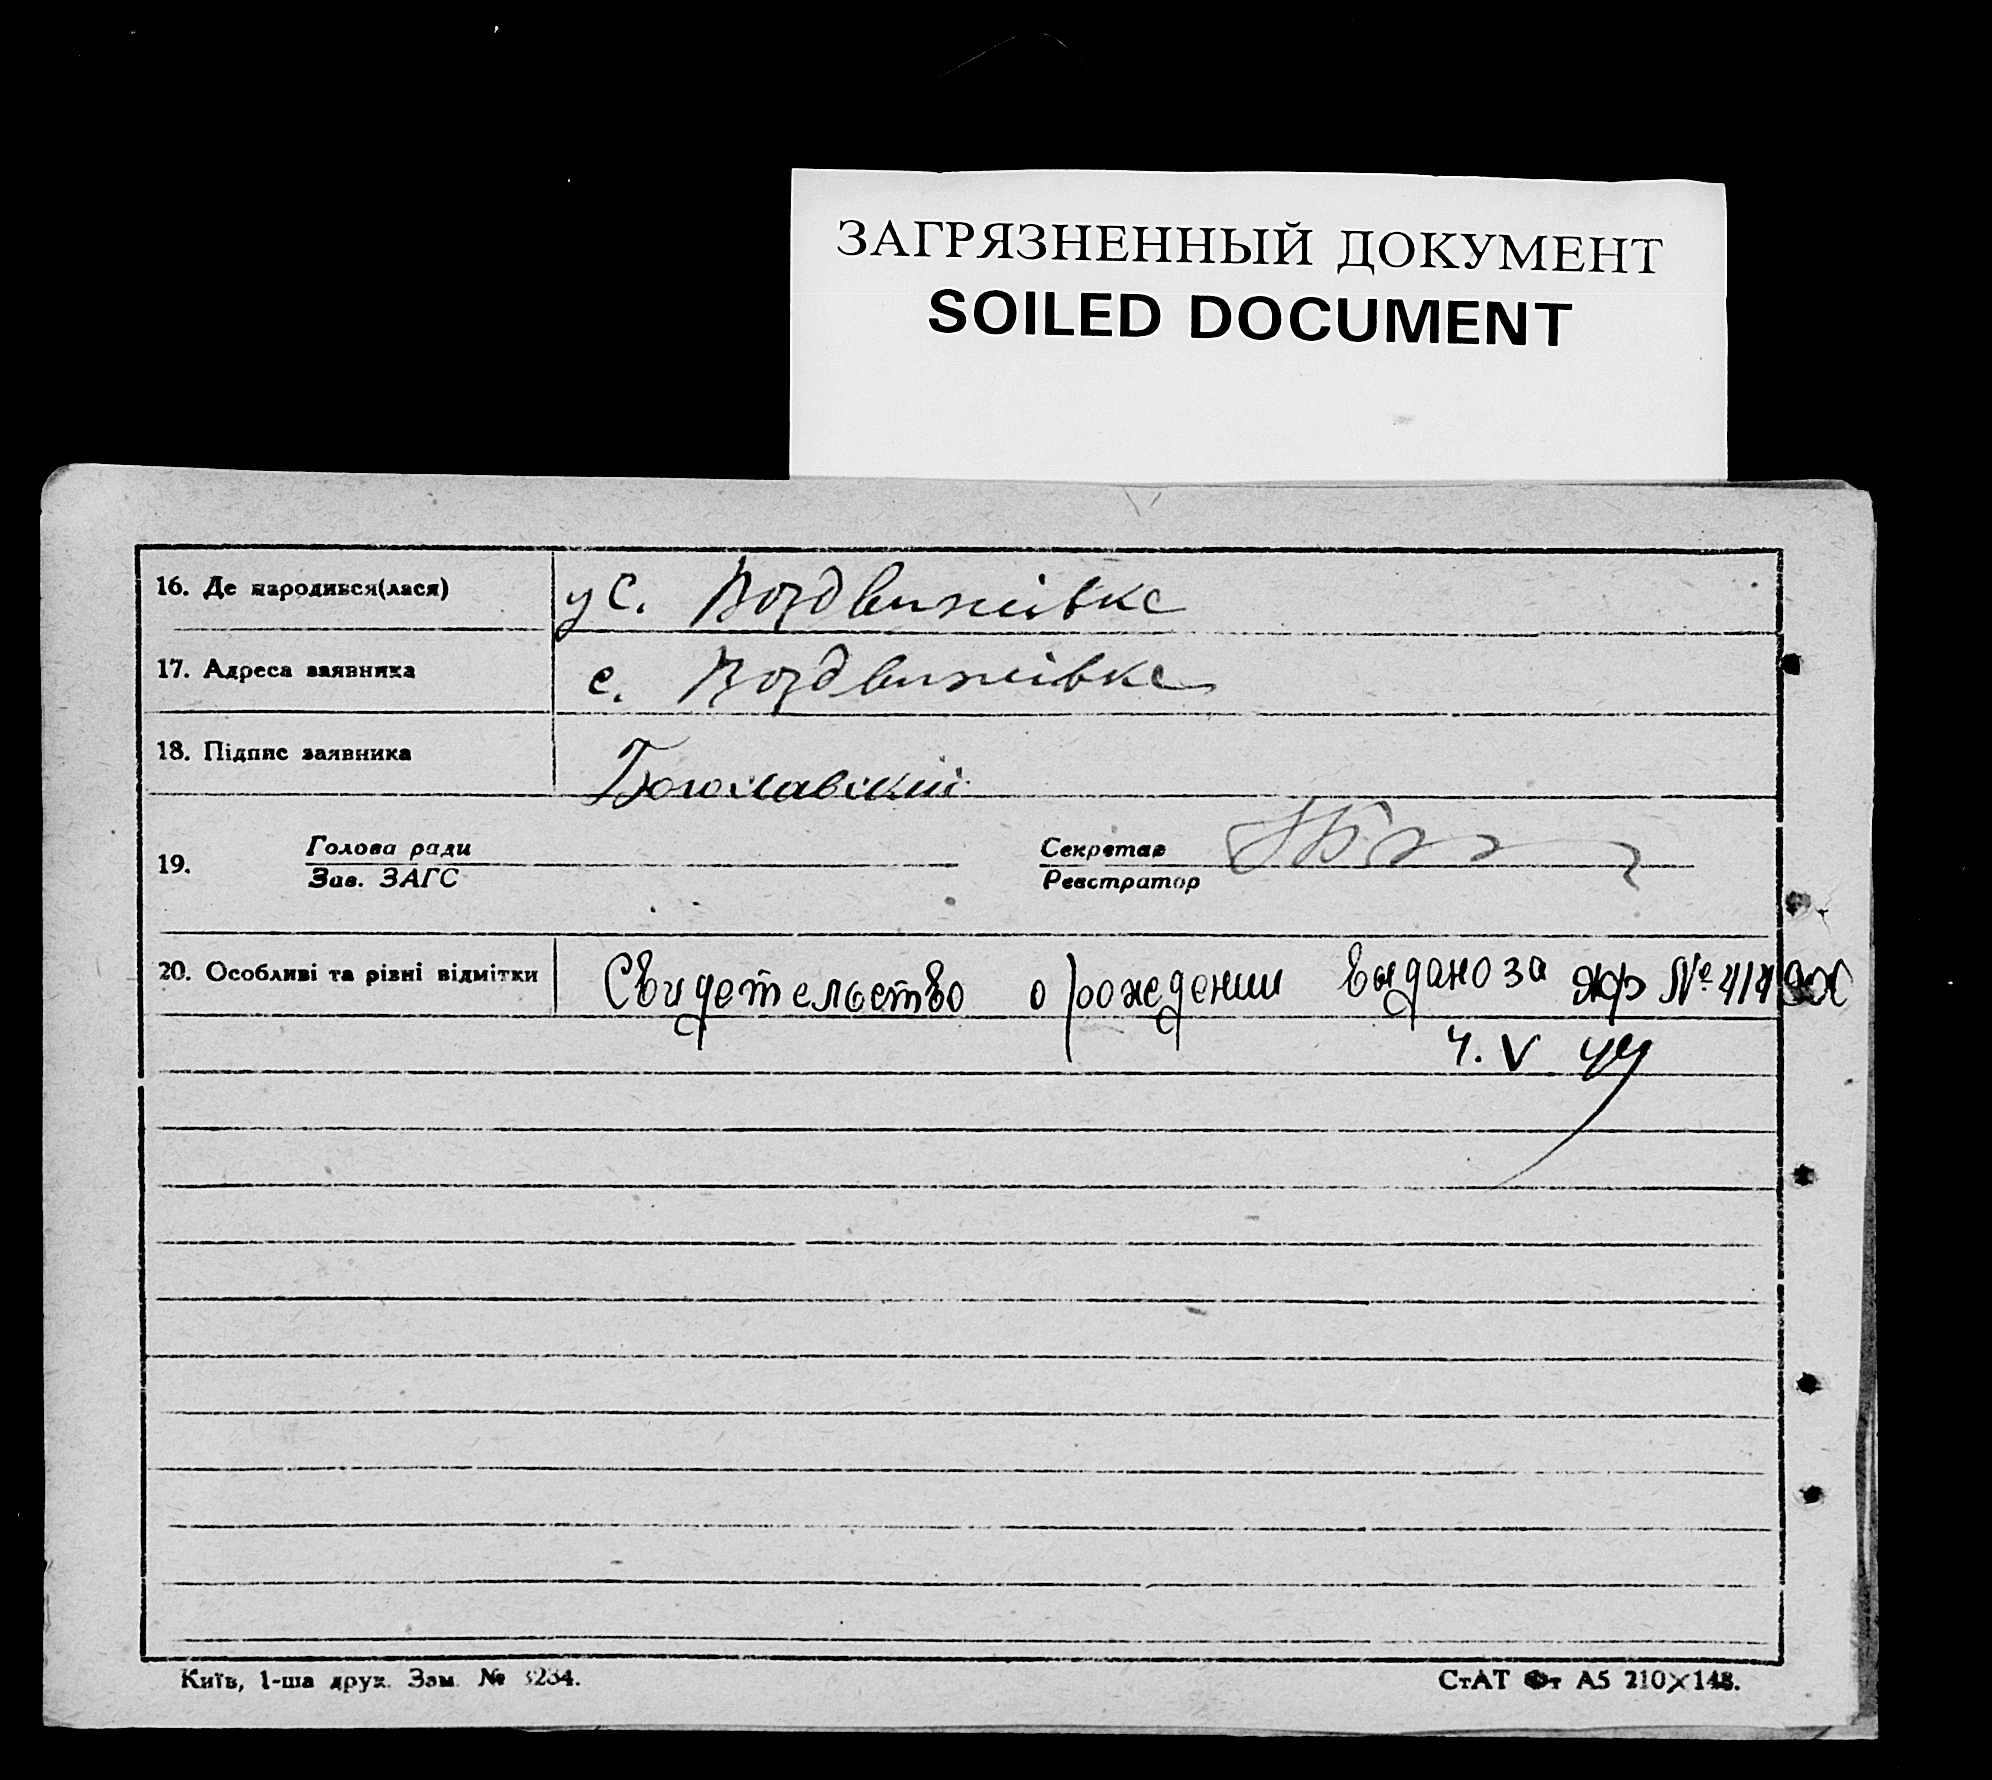 ЗАГРЯЗНЕННЫЙ ДОКУМЕНТ
SOILED DOCUMENT
16. Де народився(лася) у с. Воздвиживке
17. Адреса заявника с. Воздвиживке
18. Підпис заявника Богославский
19. Голова ради Секретар
Зав. ЗАГС Реєстратор
20. Особливі та різні відмітки Свидетельство о рождении выдано за яф №
4. V 44
Київ, 1-ша друк. Зам. № 3234.
СтАТ Фт А5 210×148.